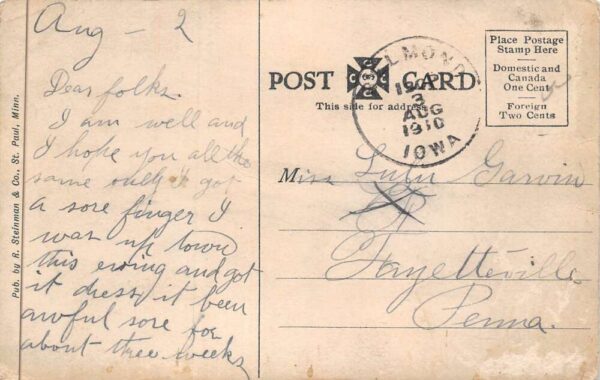 Aug - 2
Dear folks.
I am well and
I hope you all the
same only I got
a sore finger I
was up town
this evning and got
it dress, it been
awful sore for
about three weeks
Pub. by R. Steinman & Co., St. Paul, Minn.
POST CARD
This side for address
3
AUG
1910
IOWA
Place Postage
Stamp Here
Domestic and
Canada
One Cent
Foreign
Two Cents
Miss Lulu Garvin
Fayetteville
Penna.